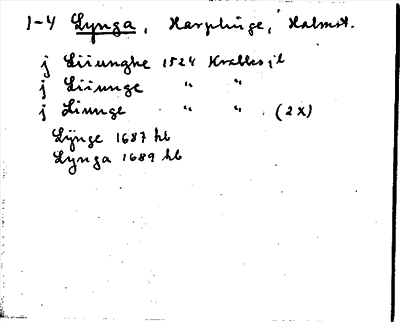 1-4 Lynga, Harplinge, Halmst.
j Liiunghe 1524 Hrallbo jb
j Liiunge " "
j Liunge " " (2x)
Lÿnge 1687 hb
Lynga 1689 hb